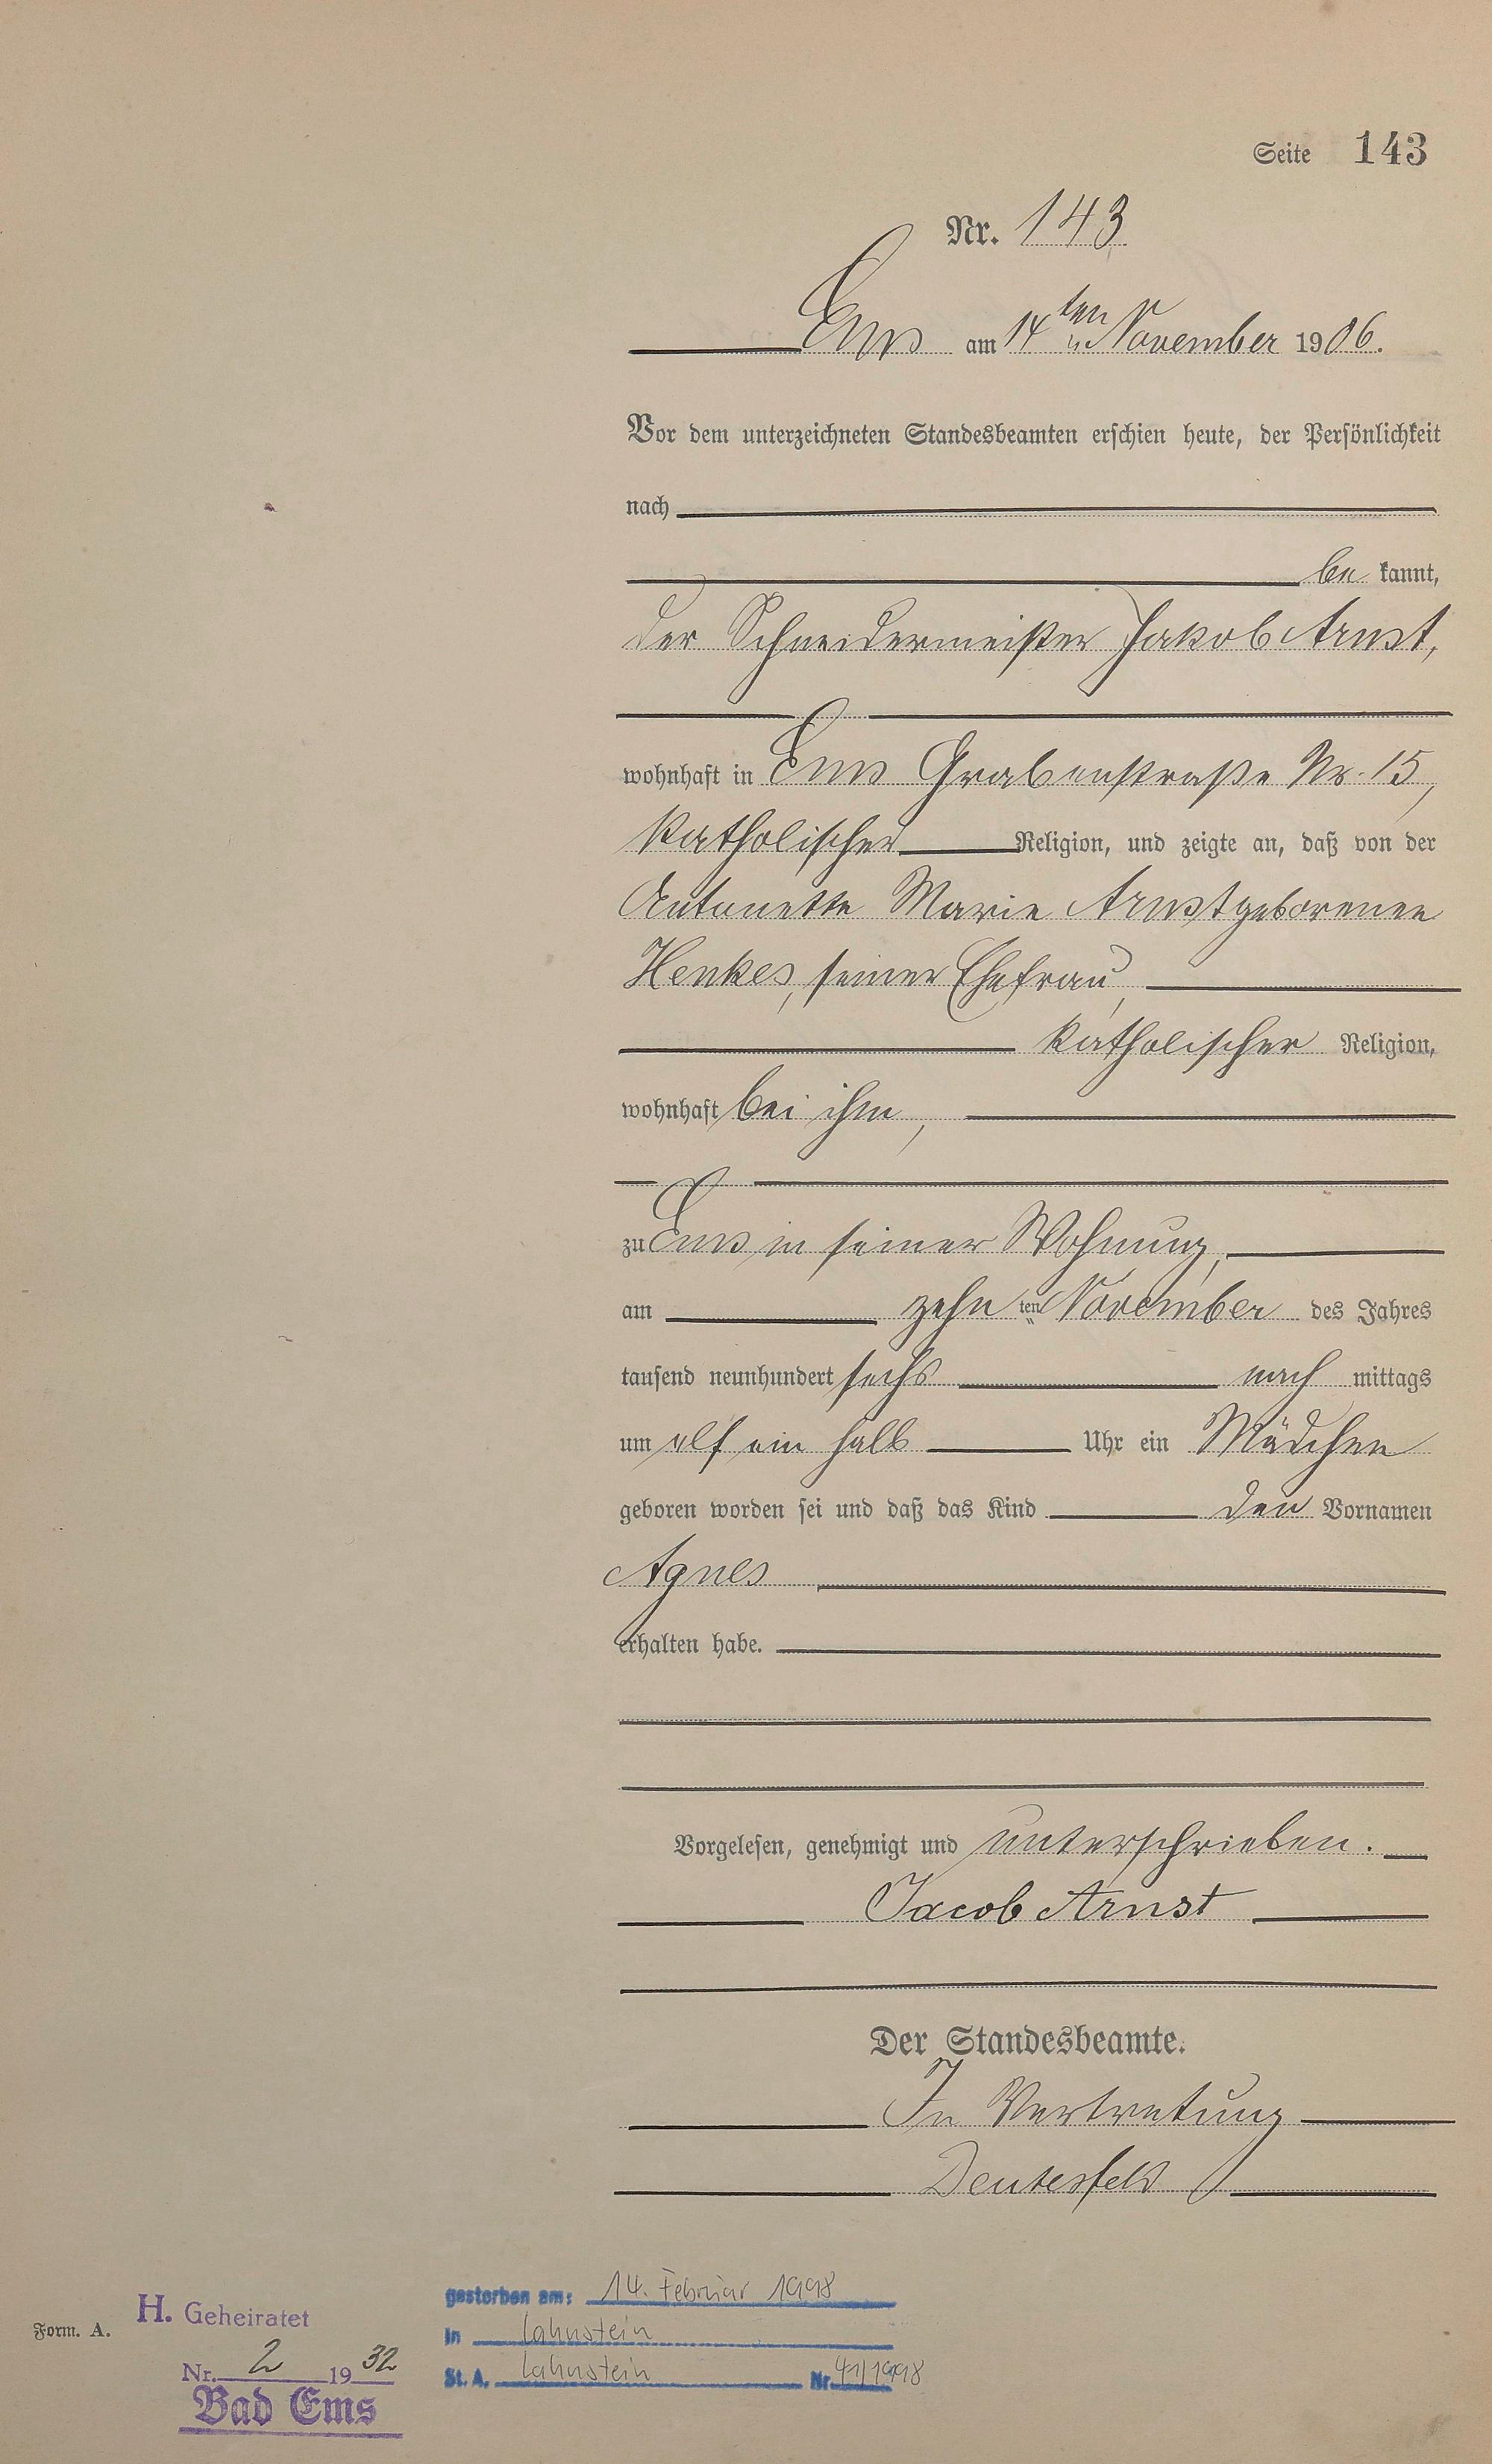 Seite 143
Nr. 143
Ems am 14ten November 1906.
Vor dem unterzeichneten Standesbeamten erschien heute, der Persönlichkeit
nach
be kannt,
der Schneidermeister Jakob Arnst,
wohnhaft in Ems Grabenstraße Nr. 15,
katholischer Religion, und zeigte an, daß von der
Antonette Marie Arnst geborenen
Henkes, seiner Ehefrau,
katholischer Religion,
wohnhaft bei ihm,
zu Ems in seiner Wohnung,
am zehn ten November des Jahres
tausend neunhundert sechs nach mittags
um elf ein halb Uhr ein Mädchen
geboren worden sei und daß das Kind den Vornamen
Agnes
erhalten habe.
Vorgelesen, genehmigt und unterschrieben.
Jacob Arnst
Der Standesbeamte.
In Vertretung
Deutesfeld
gestorben am: 14. Februar 1998
in Lahnstein
St. A. Lahnstein Nr. 41/1998
Form. A.
H. Geheiratet
Nr. 2 1932
Bad Ems